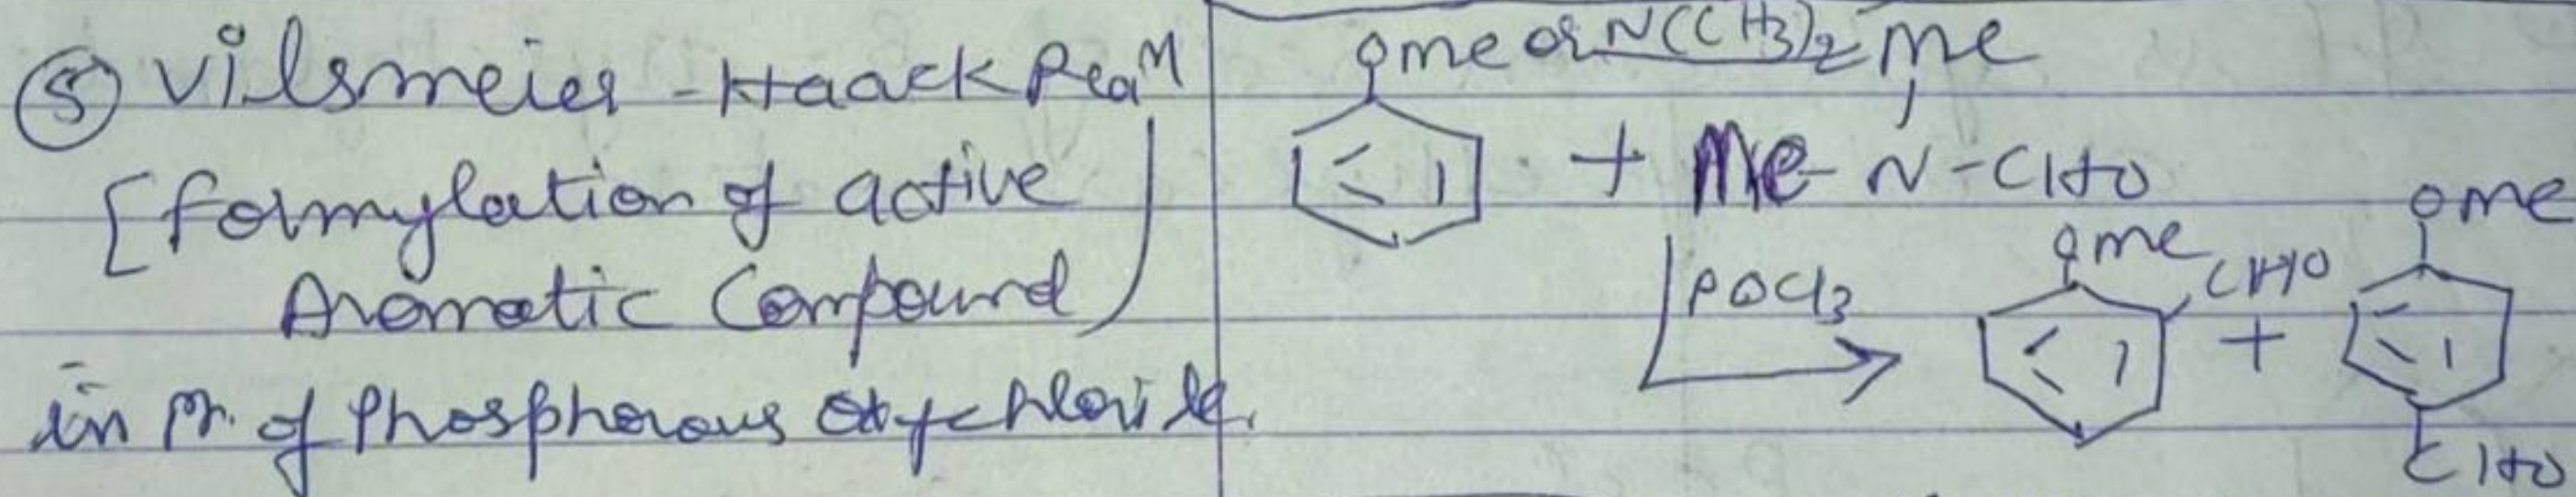 ⑤ Vilsmeier - Haack Reaⁿ
[formylation of active
Aromatic Compound)
in Pr. of Phosphorous Oxychloride.
OMe or N(CH3)2
Me
+ Me - N - CHO
POCl3
OMe
CHO
+
OMe
CHO